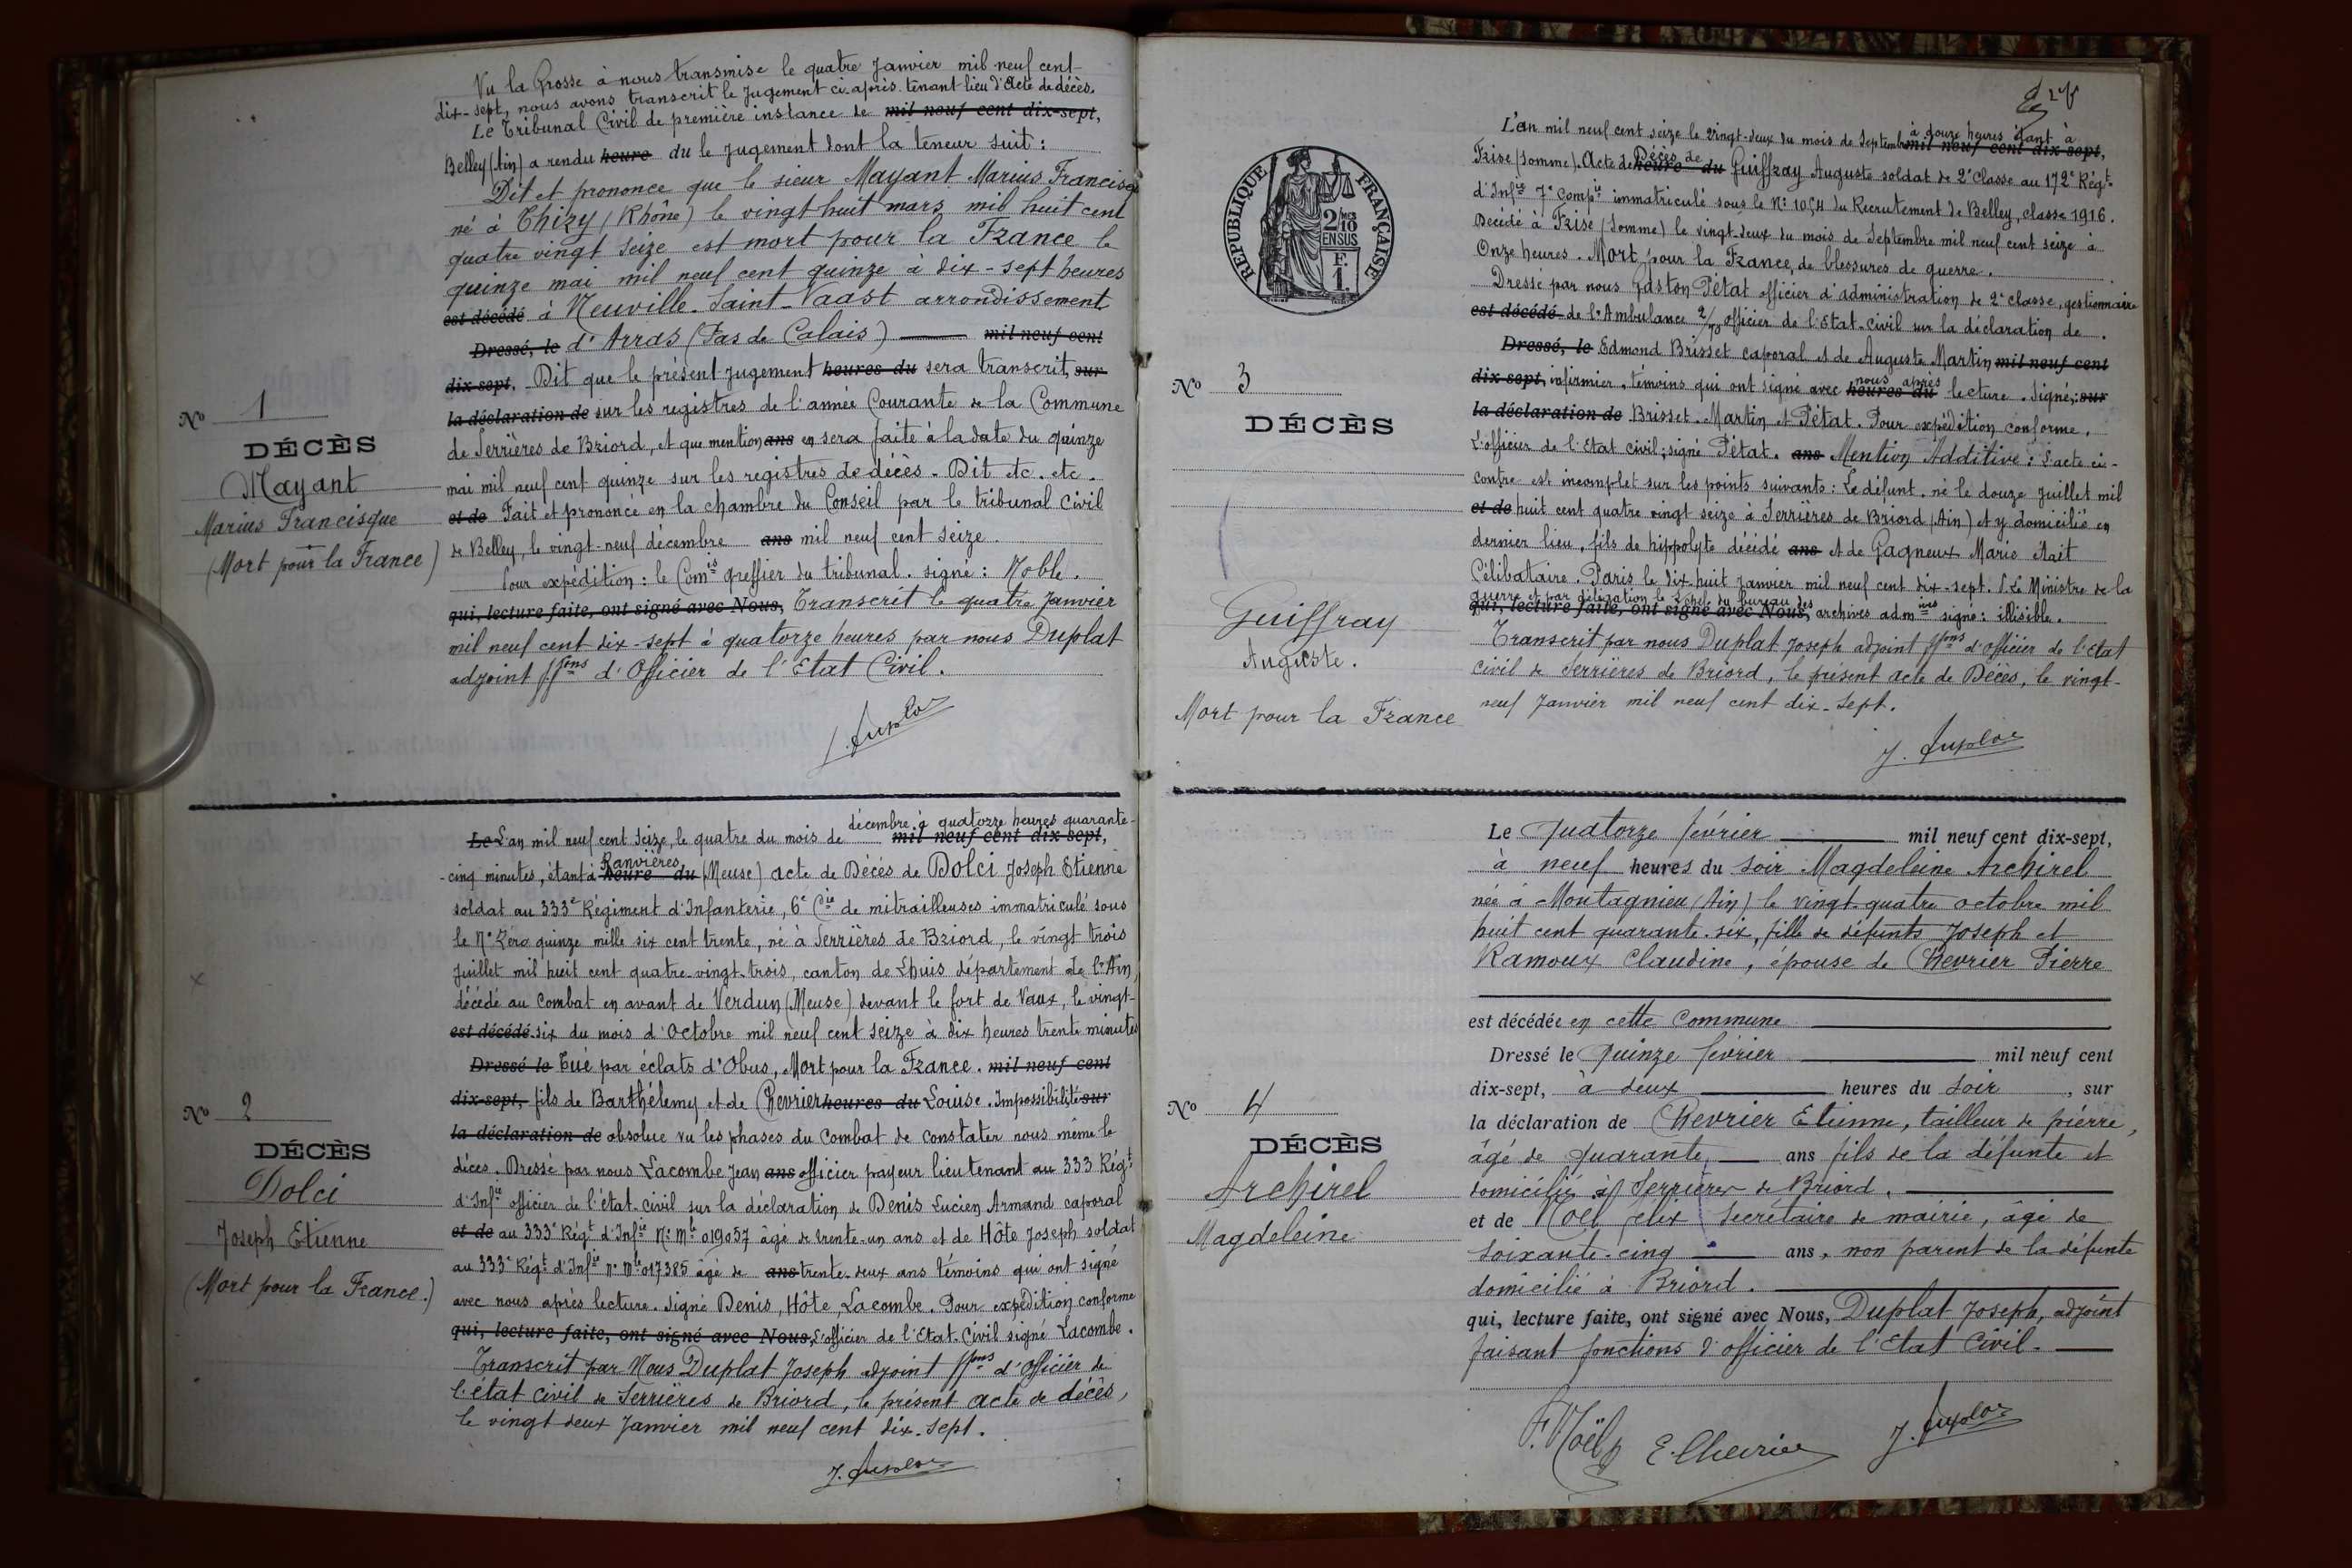 Vu la Grosse à nous transmise le quatre Janvier mil neuf cent
dix-sept, nous avons transcrit le Jugement ci-après tenant lieu d'Acte de décès.
Le Tribunal Civil de première instance de mil neuf cent dix-sept,
Belley (Ain) a rendu heure du le Jugement dont la teneur suit :
Dit et prononce que le sieur Mayant Marius Francisque
né à Thizy (Rhône) le vingt huit mars mil huit cent
quatre vingt seize est mort pour la France le
quinze mai mil neuf cent quinze à dix-sept heures
est décédé à Neuville-Saint-Vaast arrondissement
Dressé, le d'Arras (Pas de Calais) mil neuf cent
dix-sept. Dit que le présent Jugement heures du sera transcrit, sur
la déclaration de sur les registres de l'année Courante de la Commune
de Serrières de Briord, et que mention ans en sera faite à la date du quinze
mai mil neuf cent quinze sur les registres de décès. Dit etc. etc.
et de Fait et prononcé en la chambre du Conseil par le tribunal Civil
de Belley, le vingt-neuf décembre ans mil neuf cent seize.
Pour expédition : le Com^is greffier du tribunal. signé : Noble.
qui, lecture faite, ont signé avec Nous, Transcrit le quatre Janvier
mil neuf cent dix-sept à quatorze heures par nous Duplat
adjoint ff^ons d'Officier de l'Etat Civil.
J. Duplat
N° 1
DÉCÈS
Mayant
Marius Francisque
(Mort pour la France)
décembre à quatorze heures quarante-
Le L'an mil neuf cent seize, le quatre du mois de mil neuf cent dix-sept,
Ranvières
-cinq minutes, étant à heure du (Meuse) acte de Décès de Dolci Joseph Etienne
soldat au 333e Régiment d'Infanterie, 6e C^ie de mitrailleuses immatriculé sous
le N° Zéro quinze mille six cent trente, né à Serrières de Briord, le vingt trois
Juillet mil huit cent quatre-vingt-trois, canton de Lhuis département de l'Ain,
décédé au combat en avant de Verdun (Meuse) devant le fort de Vaux, le vingt-
est décédé six du mois d'Octobre mil neuf cent seize à dix heures trente minutes
Dressé le Tué par éclats d'Obus, Mort pour la France. mil neuf cent
dix-sept, fils de Barthélemy et de Chevrier heures du Louise. Impossibilité sur
la déclaration de absolue vu les phases du combat de constater nous même le
déces. Dressé par nous Lacombe Jean ans officier payeur lieutenant au 333 Rég^t
d'Inf^ie officier de l'état-civil sur la déclaration de Denis Lucien Armand caporal
et de au 333e Rég^t d'Inf^ie N° M^le 019057 âgé de trente-un ans et de Hôte Joseph soldat
au 333e Rég^t d'Inf^ie n° M^le 017385 âgé de ans trente-deux ans témoins qui ont signé
avec nous après lecture. Signé Denis, Hôte, Lacombe. Pour expédition conforme
qui, lecture faite, ont signé avec Nous, l'officier de l'Etat-Civil signé Lacombe.
Transcrit par Nous Duplat Joseph adjoint ff^ons d'Officier de
l'état civil de Serrières de Briord, le présent acte de décès,
le vingt deux Janvier mil neuf cent dix-sept.
J. Duplat
N° 2
DÉCÈS
Dolci
Joseph Etienne
(Mort pour la France.)
RÉPUBLIQUE FRANÇAISE
2/10
EN SUS
F.
1.
à douze heures étant à
L'an mil neuf cent seize le vingt-deux du mois de Septembre mil neuf cent dix-sept,
Décès de
Frise (Somme). Acte de heure du Guiffray Auguste soldat de 2e Classe au 172e Rég^t
d'Inf^ie 7e Comp^ie immatriculé sous le N° 1054 du Recrutement de Belley, classe 1916.
Décédé à Frise (Somme) le vingt-deux du mois de Septembre mil neuf cent seize à
Onze heures. Mort pour la France, de blessures de guerre.
Dressé par nous Gaston Pétat officier d'administration de 2e classe, gestionnaire
est décédé de l'Ambulance 2/70 officier de l'Etat-Civil sur la déclaration de
Dressé, le Edmond Brisset caporal et de Auguste Martin mil neuf cent
nous après
dix-sept, infirmier, témoins qui ont signé avec heures du lecture. Signé: sur
la déclaration de Brisset. Martin et Pétat. Pour expédition conforme.
L'officier de l'Etat civil; signé Pétat. ans Mention Additive : L'acte ci-
contre est incomplet sur les points suivants : Le défunt, né le douze Juillet mil
et de huit cent quatre vingt seize à Serrières de Briord (Ain) et y domicilié en
dernier lieu, fils de hippolyte décédé ans et de Gagneux Marie était
Célibataire. Paris le dix-huit Janvier mil neuf cent dix-sept. P. Le Ministre de la
guerre et par délégation le Chef du bureau des
qui, lecture faite, ont signé avec Nous, archives adm^ives signé : illisible.
Transcrit par nous Duplat Joseph adjoint ff^ons d'officier de l'Etat
Civil de Serrières de Briord, le présent acte de Décès, le vingt-
neuf Janvier mil neuf cent dix-sept.
J. Duplat
N° 3
DÉCÈS
Guiffray
Auguste.
Mort pour la France
Le Quatorze février mil neuf cent dix-sept,
à neuf heures du soir Magdeleine Archirel
née à Montagnieu (Ain) le vingt-quatre octobre mil
huit cent quarante-six, fille de défunts Joseph et
Ramoux Claudine, épouse de Chevrier Pierre
est décédée en cette Commune
Dressé le Quinze février mil neuf cent
dix-sept, à deux heures du soir, sur
la déclaration de Chevrier Etienne, tailleur de pierre,
âgé de quarante ans fils de la défunte et
domicilié à Serrières de Briord,
et de Noël félix secrétaire de mairie, âgé de
soixante-cinq ans, non parent de la défunte
domicilié à Briord.
qui, lecture faite, ont signé avec Nous, Duplat Joseph, adjoint
faisant fonctions d'officier de l'Etat Civil.
F. Noël E. Chevrier J. Duplat
N° 4
DÉCÈS
Archirel
Magdeleine